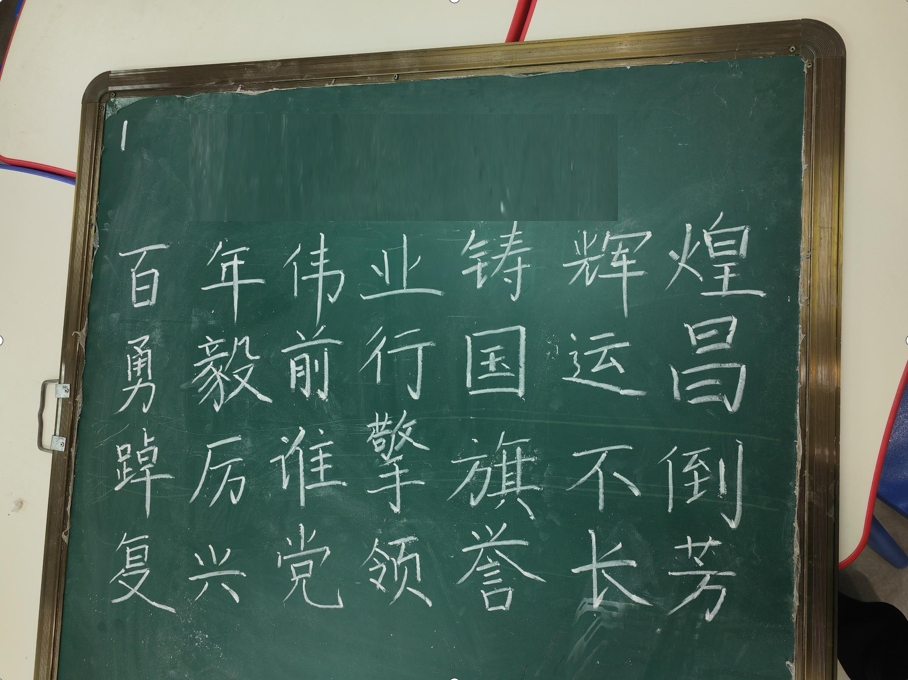 1
百年伟业铸辉煌
勇毅前行国运昌
踔厉谁擎旗不倒
复兴党领誉长芳